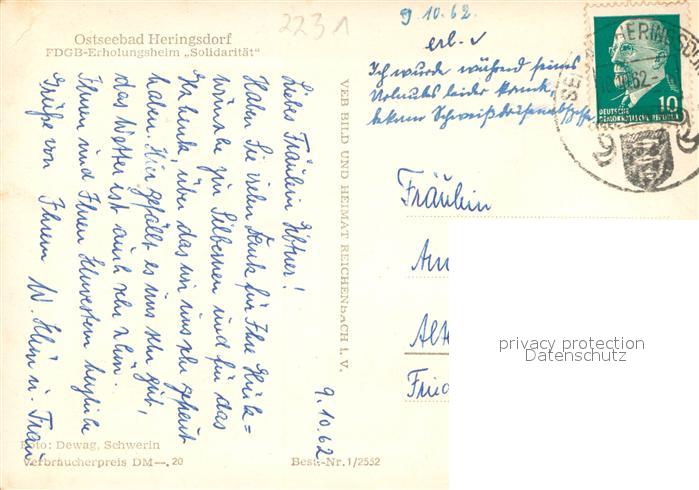 Ostseebad Heringsdorf
FDGB-Erholungsheim „Solidarität“
2231
9.10.62.
erl.
Ich wurde während seines
Urlaubs leider krank
bekam Schweißdrüsenabszesse
DEUTSCHE
DEMOKRATISCHE REPUBLIK
10
HERINGSDORF
10.62
VEB BILD UND HEIMAT REICHENBACH i. V.
9.10.62
Liebes Fräulein
Haben Sie vielen Dank für Ihre Glück=
wünsche zur Silbernen und für das
über das wir uns sehr gefreut
haben. Hier gefällt es uns sehr gut,
das Wetter ist auch sehr schön.
Ihnen und Ihren Schwestern herzliche
Grüße von Ihrem W. u. Frau
Fräulein
Am
Alt
Fried
privacy protection
Datenschutz
Foto: Dewag, Schwerin
Verbraucherpreis DM —.20
Best.-Nr. 1/2552